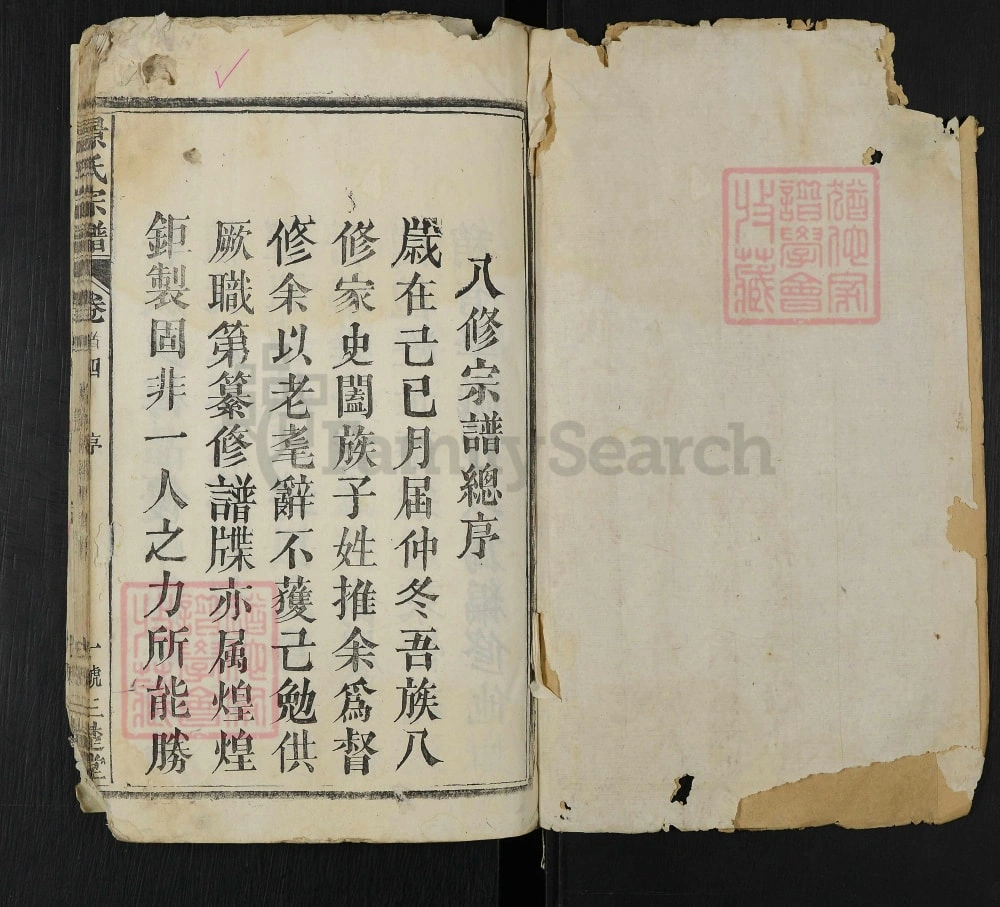 八修宗譜總序
歲在己巳月届仲冬吾族八
修家史闔族子姓推余為督
修余以老耄辭不獲已勉供
厥職第纂修譜牒亦属煌煌
鉅製固非一人之力所能勝
景氏宗譜 卷首四 序 一號 三楚堂
猶他家
譜學會
收藏
FamilySearch